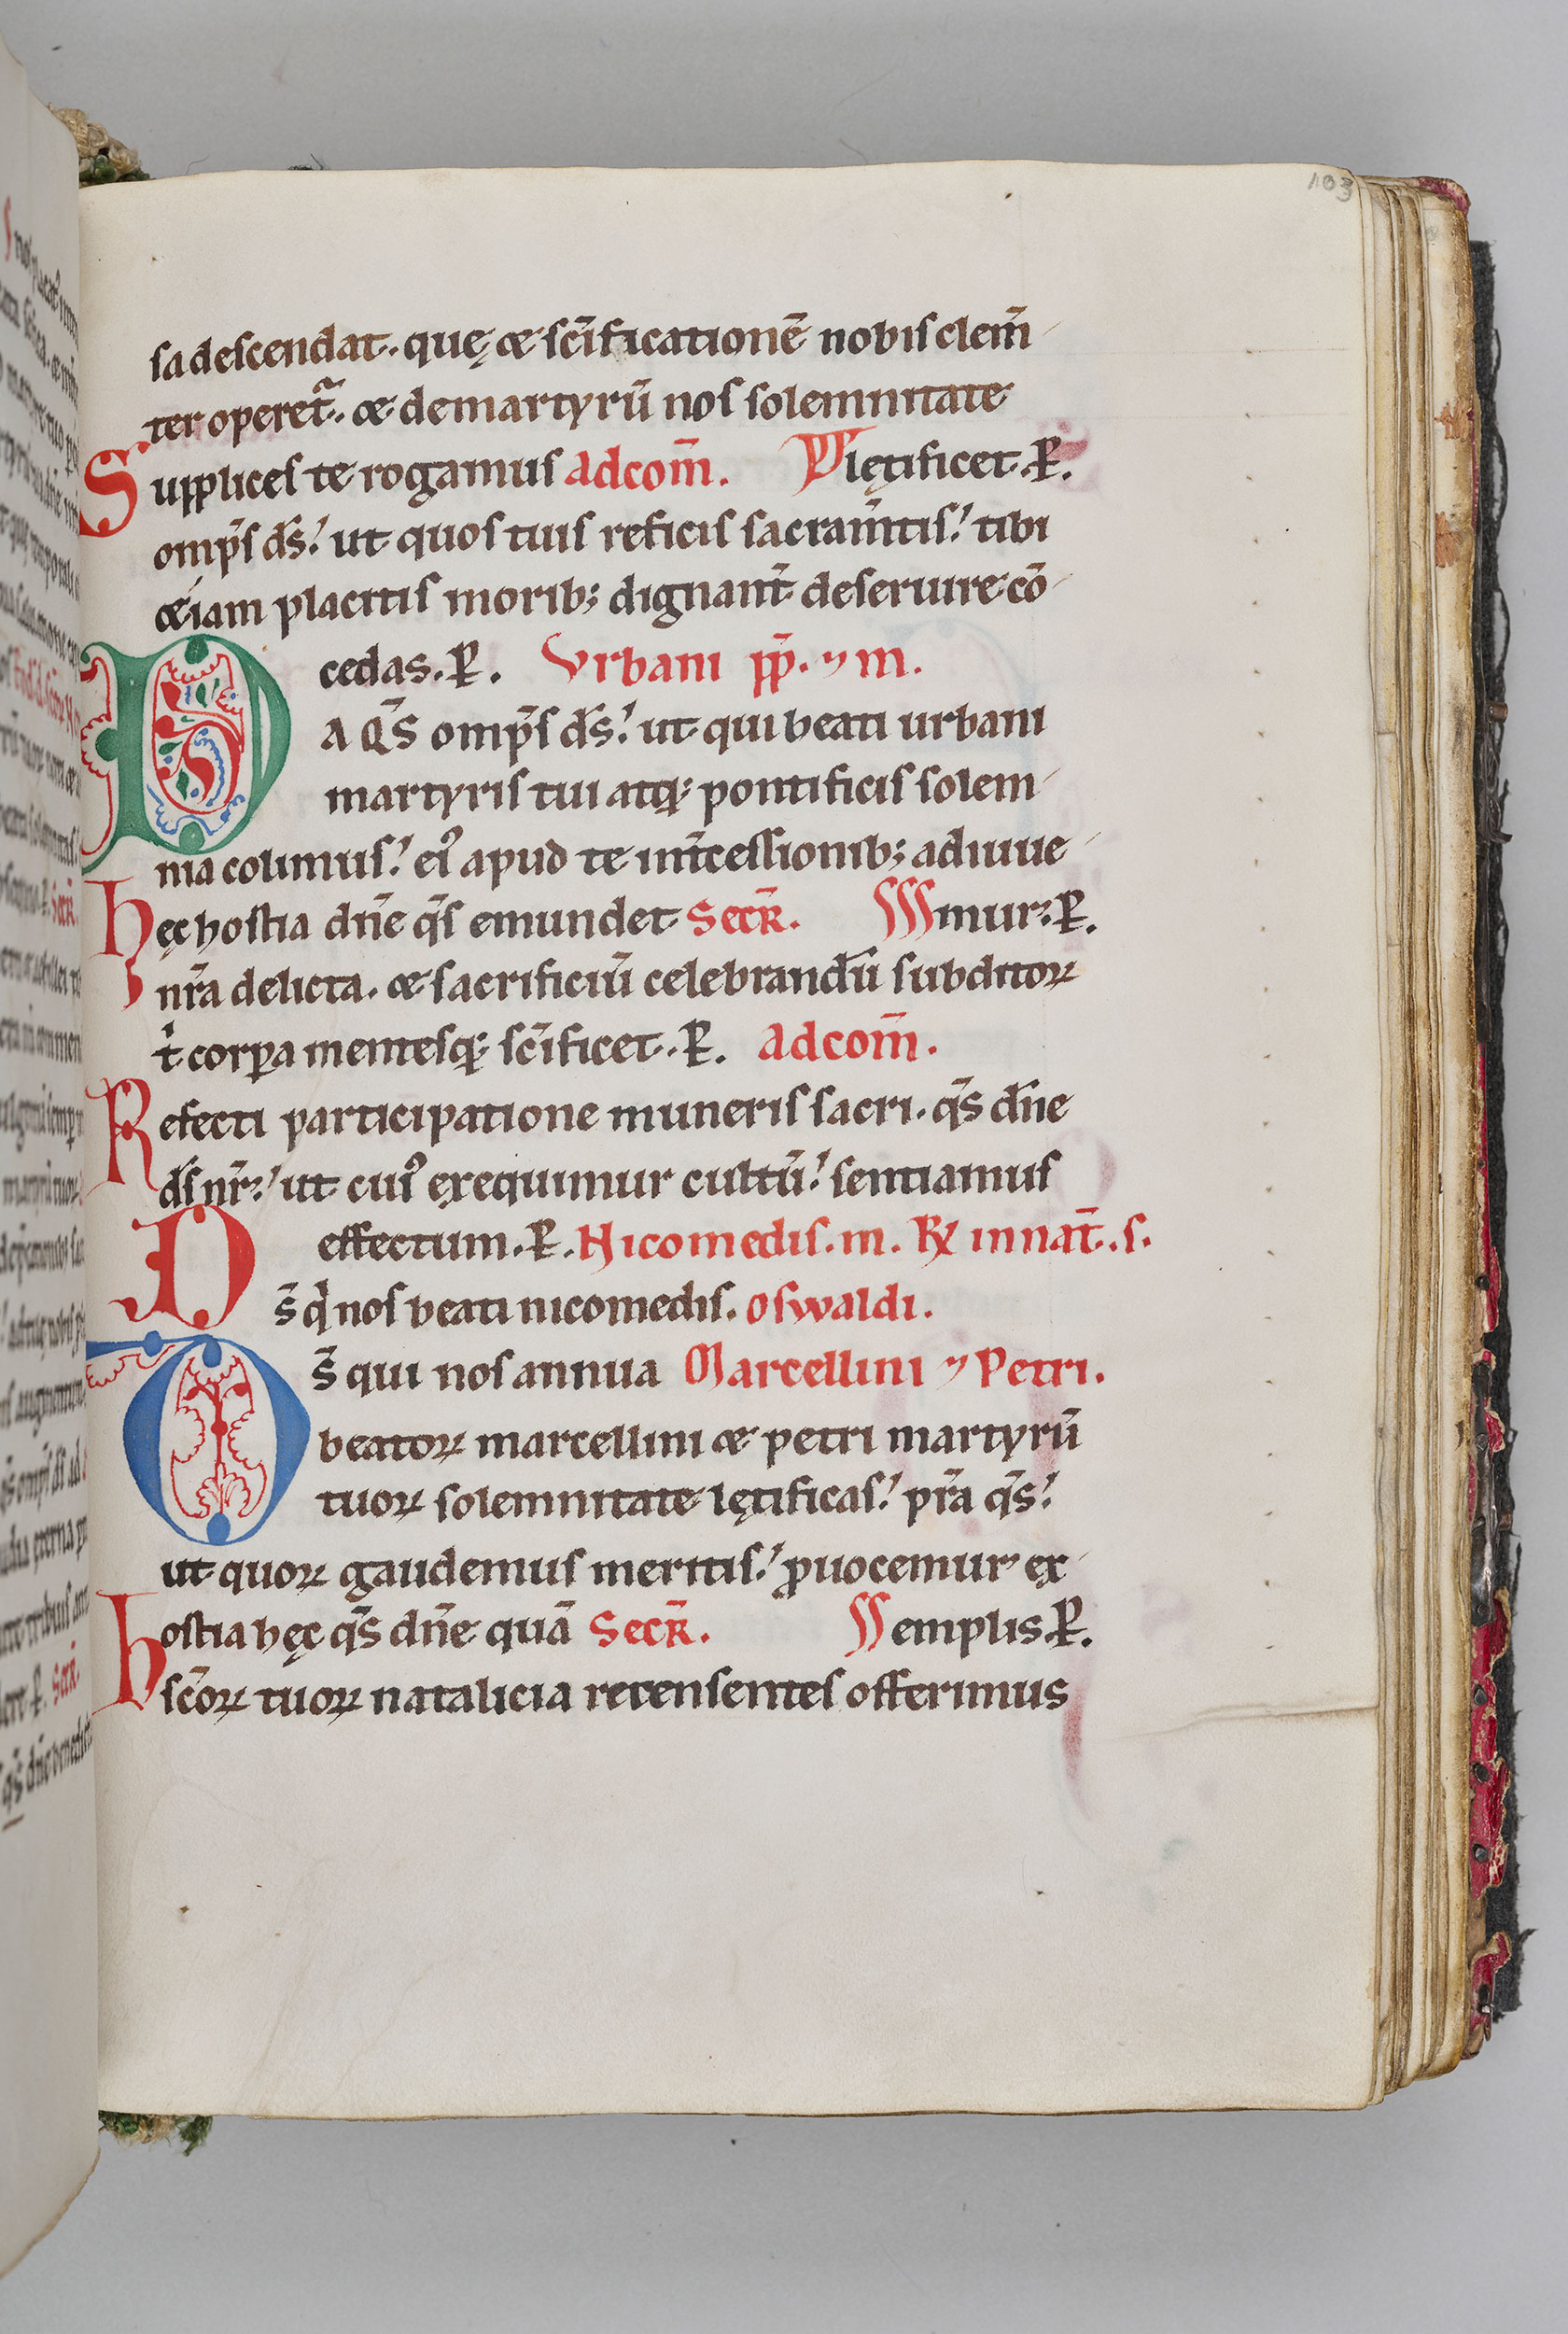 103
sa descendat. quę & sc̄ificationē nobis clem̄
ter operet᷑. & de martyrū nos solemnitate
Supplices te rogamus ad com̄. lętificet. P.
omp̄s ds̄! ut quos tuis reficis sacram̄tis! tibi
&iam placitis morib; dignant̄ deseruire cō
cedas. P. Urbani pp̄. ⁊ m.
DA Q̄S omp̄s ds̄! ut qui beati urbani
martyris tui atq; pontificis solem
nia colimus! ei᾿ apud te int̄cessionib; adiuue
hęc hostia dn̄e q̄s emundet Secr̄. mur: P.
nr̄a delicta. & sacrificiū celebrandū subditoꝝ
t̄ corꝑa mentesq; sc̄ificet. P. ad com̄.
Refecti participatione muneris sacri. q̄s dn̄e
ds̄ nr̄! ut cui᾿ exequimur cultū! sentiamus
effectum. P. Nicomedis. m. Rx in nat̄. s.
Ds̄ q nos beati nicomedis. oswaldi.
Ds̄ qui nos annua Marcellini ⁊ Petri.
beatoꝝ marcellini & petri martyrū
tuoꝝ solemnitate lętificas! pr̄a q̄s!
ut quoꝝ gaudemus meritis! ꝓuocemur ex
hostia hęc q̄s dn̄e quā Secr̄. emplis P.
sc̄oꝝ tuoꝝ natalicia recensentes offerimus